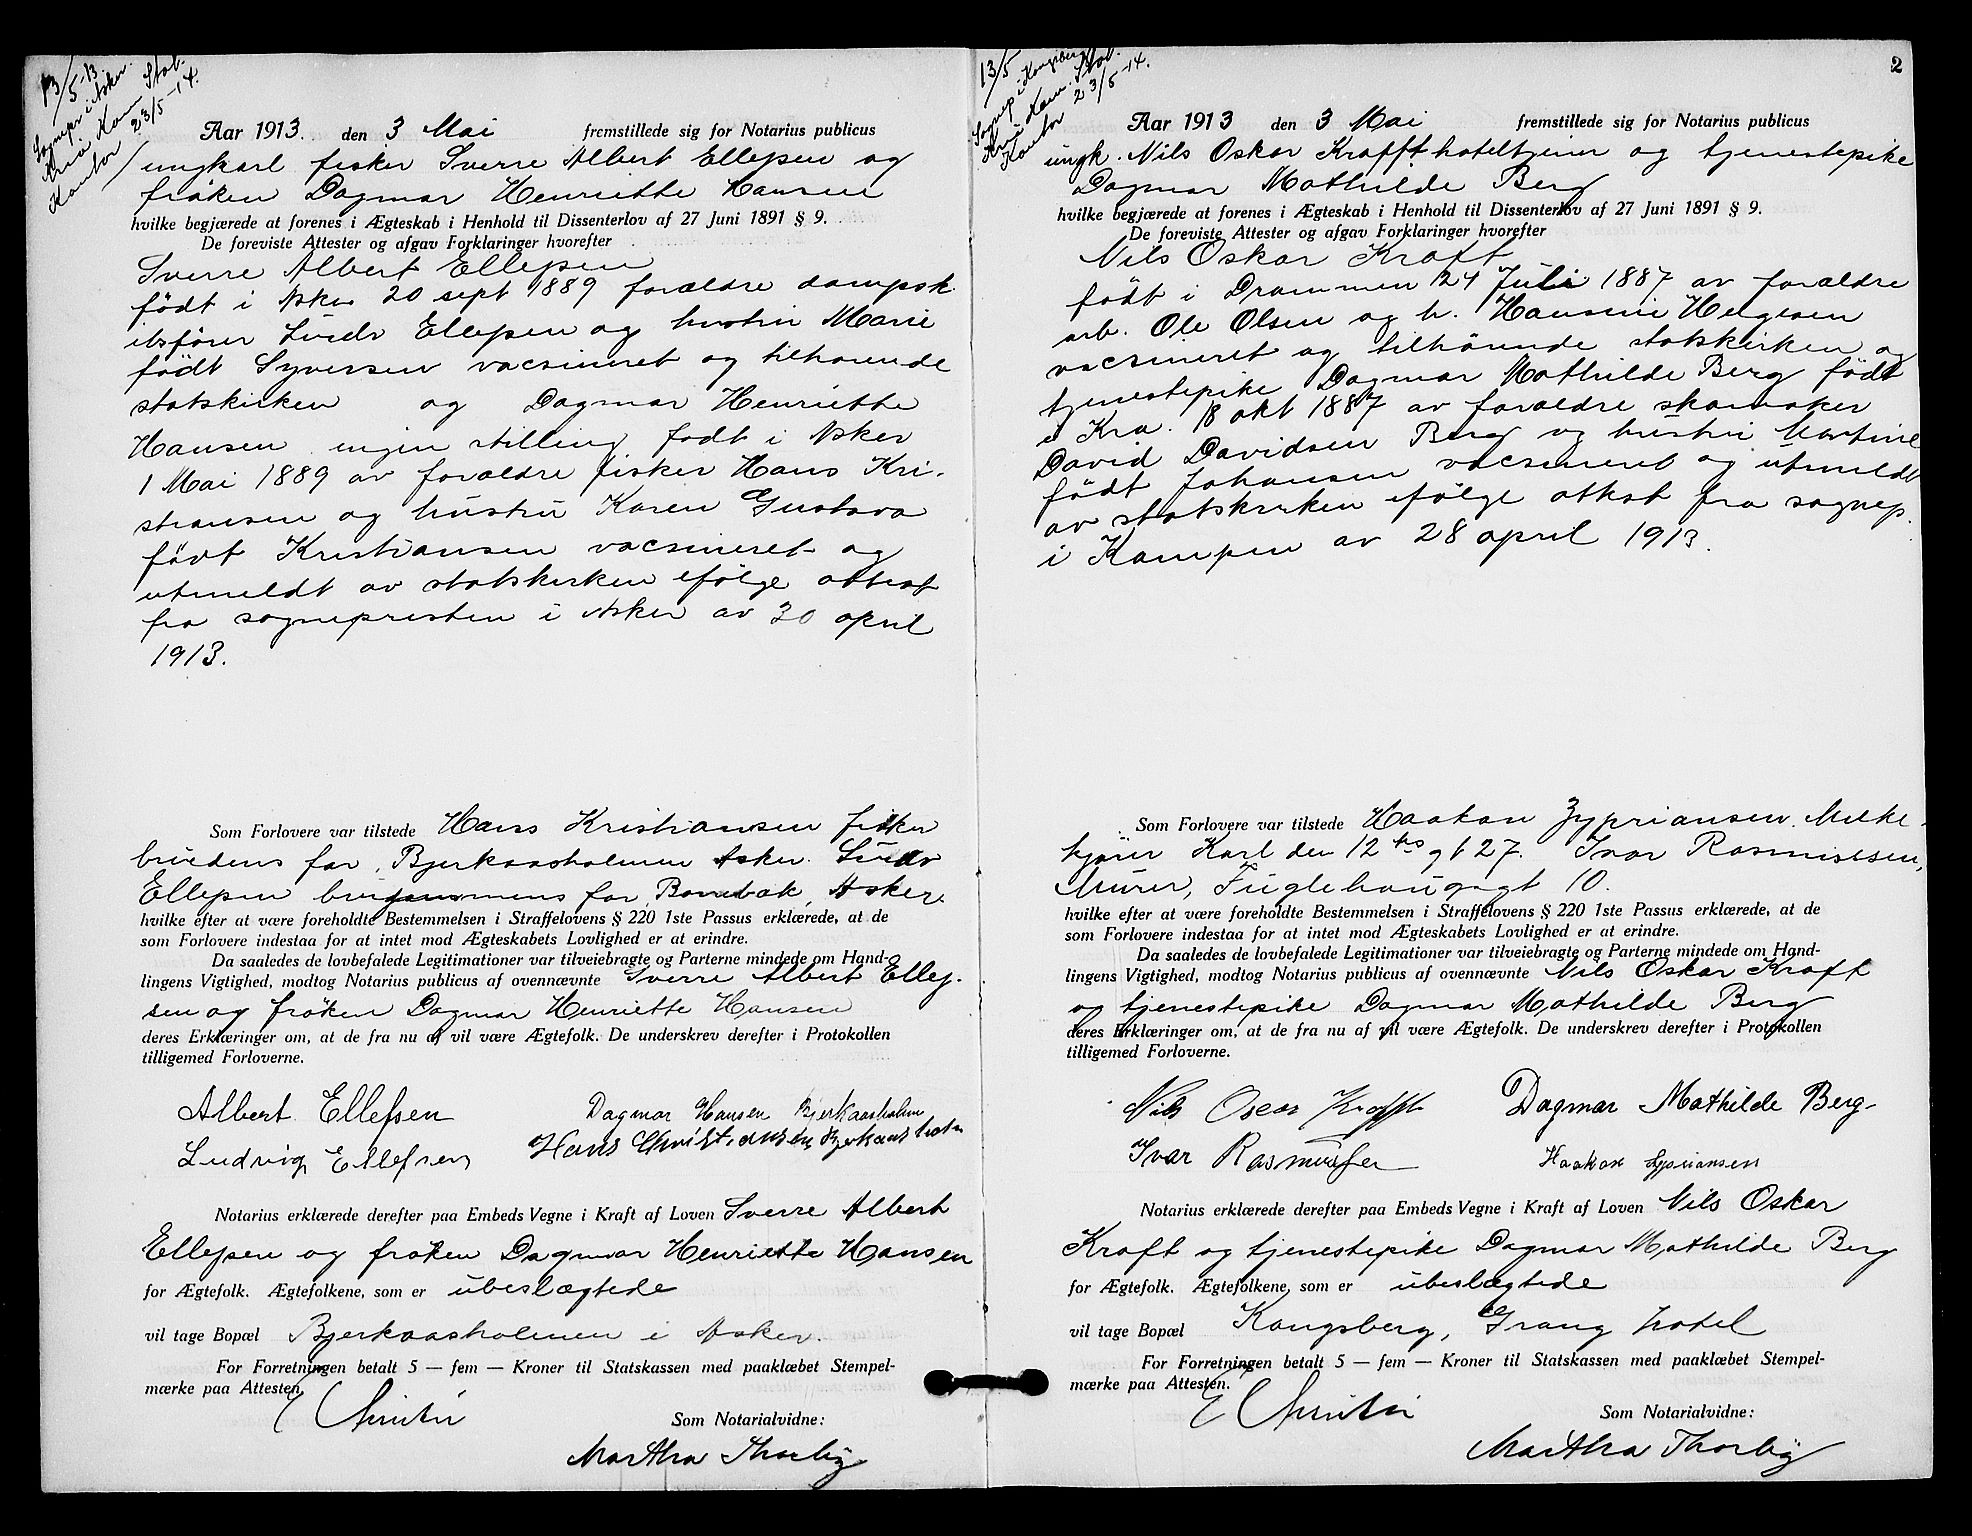 13/5-13
Sognepr i Asker.
Kra Kom Stat.
Kontor 23/5-14.
Aar 1913. den 3 Mai fremstillede sig for Notarius publicus
ungkarl fisker Sverre Albert Ellefsen og
frøken Dagmar Henriette Hansen
hvilke begjærede at forenes i Ægteskab i Henhold til Dissenterlov af 27 Juni 1891 § 9.
De foreviste Attester og afgav Forklaringer hvorefter
Sverre Albert Ellefsen
født i Asker 20 sept 1889 forældre dampsk.
ibsfører Ludv Ellefsen og hustru Marie
født Syversen vacsineret og tilhørende
statskirken og Dagmar Henriette
Hansen ingen stilling født i Asker
1 Mai 1889 av forældre fisker Hans Kri-
stiansen og hustru Karen Gustava
født Kristiansen vacsineret og
utmeldt av statskirken ifølge attest
fra sognepresten i Asker av 30 april
1913.
Som Forlovere var tilstede Hans Kristiansen fisker
brudens far, Bjerkaasholmen Asker. Ludv
Ellefsen brudgommens far, Bonebak, Asker.
hvilke efter at være foreholdte Bestemmelsen i Straffelovens § 220 1ste Passus erklærede, at de
som Forlovere indestaa for at intet mod Ægteskabets Lovlighed er at erindre.
Da saaledes de lovbefalede Legitimationer var tilveiebragte og Parterne mindede om Hand-
lingens Vigtighed, modtog Notarius publicus af ovennævnte Sverre Albert Ellef-
sen og frøken Dagmar Henriette Hansen
deres Erklæringer om, at de fra nu af vil være Ægtefolk. De underskrev derefter i Protokollen
tilligemed Forloverne.
Albert Ellefsen Dagmar Hansen Bjerkaasholm
Ludvig Ellefsen Hans Christiansen Bjerkaasholm
Notarius erklærede derefter paa Embeds Vegne i Kraft af Loven Sverre Albert
Ellefsen og frøken Dagmar Henriette Hansen
for Ægtefolk. Ægtefolkene, som er ubeslægtede
vil tage Bopæl Bjerkaasholmen i Asker.
For Forretningen betalt 5 — fem — Kroner til Statskassen med paaklæbet Stempel-
mærke paa Attesten.
E Christie
Som Notarialvidne:
Martha Thorbye
2
13/5
Sognep i Kongsberg
Kra Kom. Stat.
Kontor 23/5-14.
Aar 1913 den 3 Mai fremstillede sig for Notarius publicus
ungk. Nils Oskar Krafft hoteltjener og tjenestepike
Dagmar Mathilde Berg
hvilke begjærede at forenes i Ægteskab i Henhold til Dissenterlov af 27 Juni 1891 § 9.
De foreviste Attester og afgav Forklaringer hvorefter
Nils Oskar Kraft
født i Drammen 24 Juli 1887 av forældre
arb. Ole Olsen og h. Hansine Helgesen
vacsineret og tilhørende statskirken og
tjenestepike Dagmar Mathilde Berg født
i Kra. 18 okt 1887 av forældre skomaker
David Davidsen Berg og hustru Martine
født Johansen vacsineret og utmeldt
av statskirken ifølge attest fra sognep.
i Kampen av 28 april 1913.
Som Forlovere var tilstede Haakon Zypriansen Melke
kjører Karl den 12tes gt 27. Ivar Rasmussen,
Murer, Fuglehauggt 10.
hvilke efter at være foreholdte Bestemmelsen i Straffelovens § 220 1ste Passus erklærede, at de
som Forlovere indestaa for at intet mod Ægteskabets Lovlighed er at erindre.
Da saaledes de lovbefalede Legitimationer var tilveiebragte og Parterne mindede om Hand-
lingens Vigtighed, modtog Notarius publicus af ovennævnte Nils Oskar Kraft
og tjenestepike Dagmar Mathilde Berg
deres Erklæringer om, at de fra nu af vil være Ægtefolk. De underskrev derefter i Protokollen
tilligemed Forloverne.
Nils Oscar Krafft Dagmar Mathilde Berg.
Ivar Rasmussen Haakon Zypriansen
Notarius erklærede derefter paa Embeds Vegne i Kraft af Loven Nils Oskar
Kraft og tjenestepike Dagmar Mathilde Berg
for Ægtefolk. Ægtefolkene, som er ubeslægtede
vil tage Bopæl Kongsberg, Grand hotel
For Forretningen betalt 5 — fem — Kroner til Statskassen med paaklæbet Stempel-
mærke paa Attesten.
E Christie
Som Notarialvidne:
Martha Thorbye